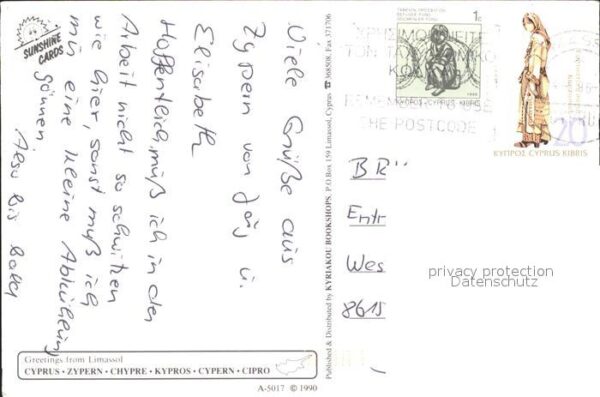 SUNSHINE
CARDS
Viele Grüße aus
Zypern von Jörg u.
Elisabeth
Hoffentlich muß ich in der
Arbeit nicht so schwitzen
wie hier, sonst muß ich
mir eine kleine Abkühlung
gönnen.
Also bis bald
Greetings from Limassol
CYPRUS • ZYPERN • CHYPRE • KYPROS • CYPERN • CIPRO
A-5017 © 1990
Published & Distributed by KYRIAKOU BOOKSHOPS, P.O Box 159 Limassol, Cyprus ☎ 368508, Fax 371706
1c
REFUGEE FUND
ΚΥΠΡΟΣ • CYPRUS • KIBRIS
THE POSTCODE
20
ΚΥΠΡΟΣ CYPRUS KIBRIS
BR"
Entr
Wes
8615
privacy protection
Datenschutz